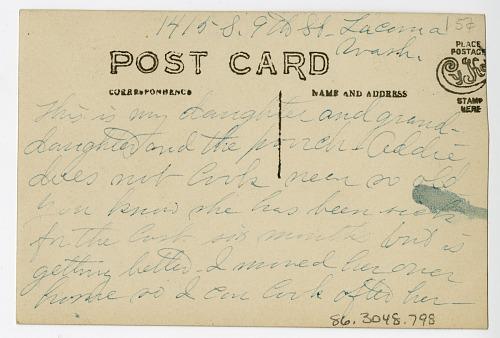 1415 S. 9th St. Tacoma
Wash.
157
POST CARD
PLACE
POSTAGE
STAMP
HERE
CORRESPONDENCE
NAME AND ADDRESS
This is my daughter and grand-
daughter and the porch - Addie
does not look near so old
You know she has been sick
for the last six months but is
getting better - I moved her over
home so I can look after her -
86.3048.798